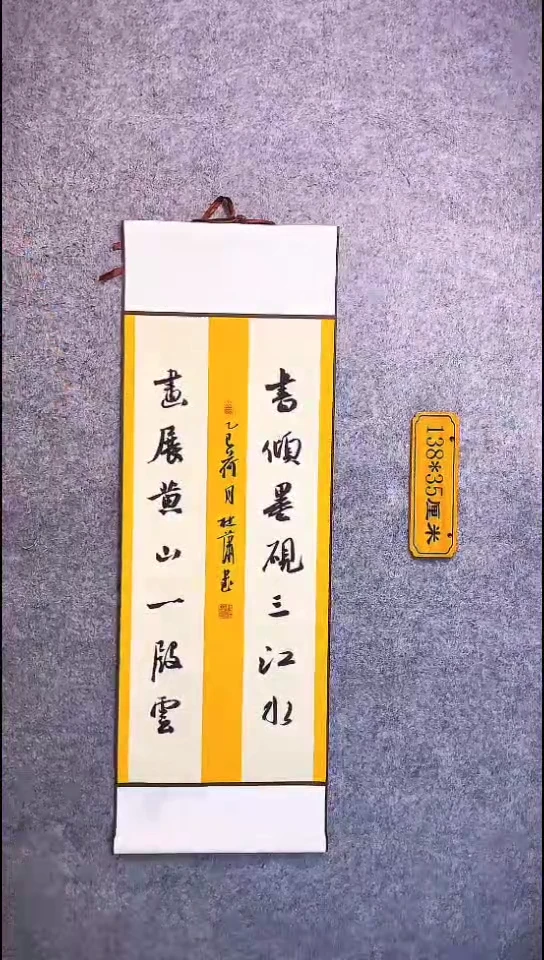 書傾墨硯三江水
畫展黄山一段雲
乙巳荷月杜蕭書
138*35厘米